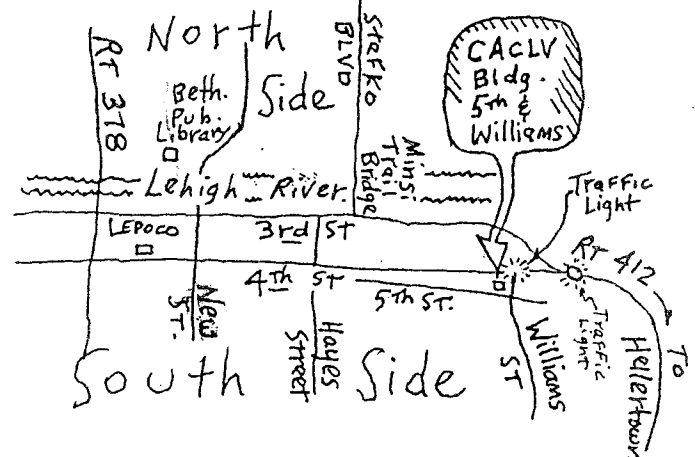 North
Side
RT 378
Beth.
Pub.
Library
Stefko
BLVD
CACLV
Bldg.
5th &
Williams
Minsi
Trail
Bridge
Lehigh River
Traffic
Light
LEPOCO
3rd ST
RT 412
To
Hellertown
4th ST
5th ST.
New
ST.
Hayes
Street
Williams
ST
Traffic
Light
South Side